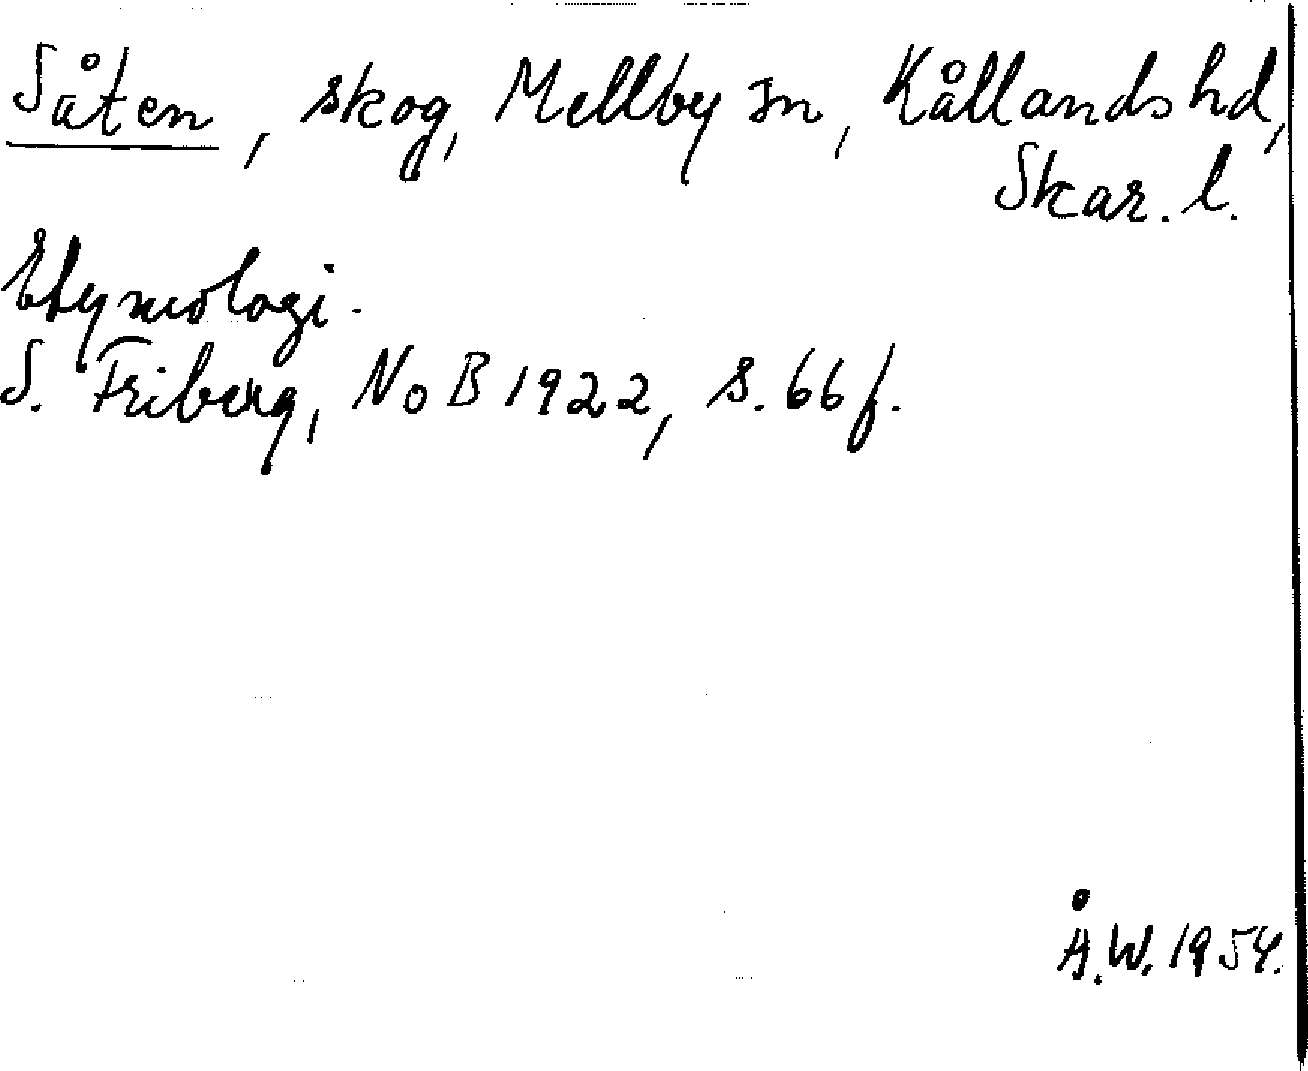 Såten, skog, Mellby sn, Kållands hd,
Skar. l.
Etymologi.
S. Friberg, NoB 1922, s. 66 f.
Å.W. 1954.